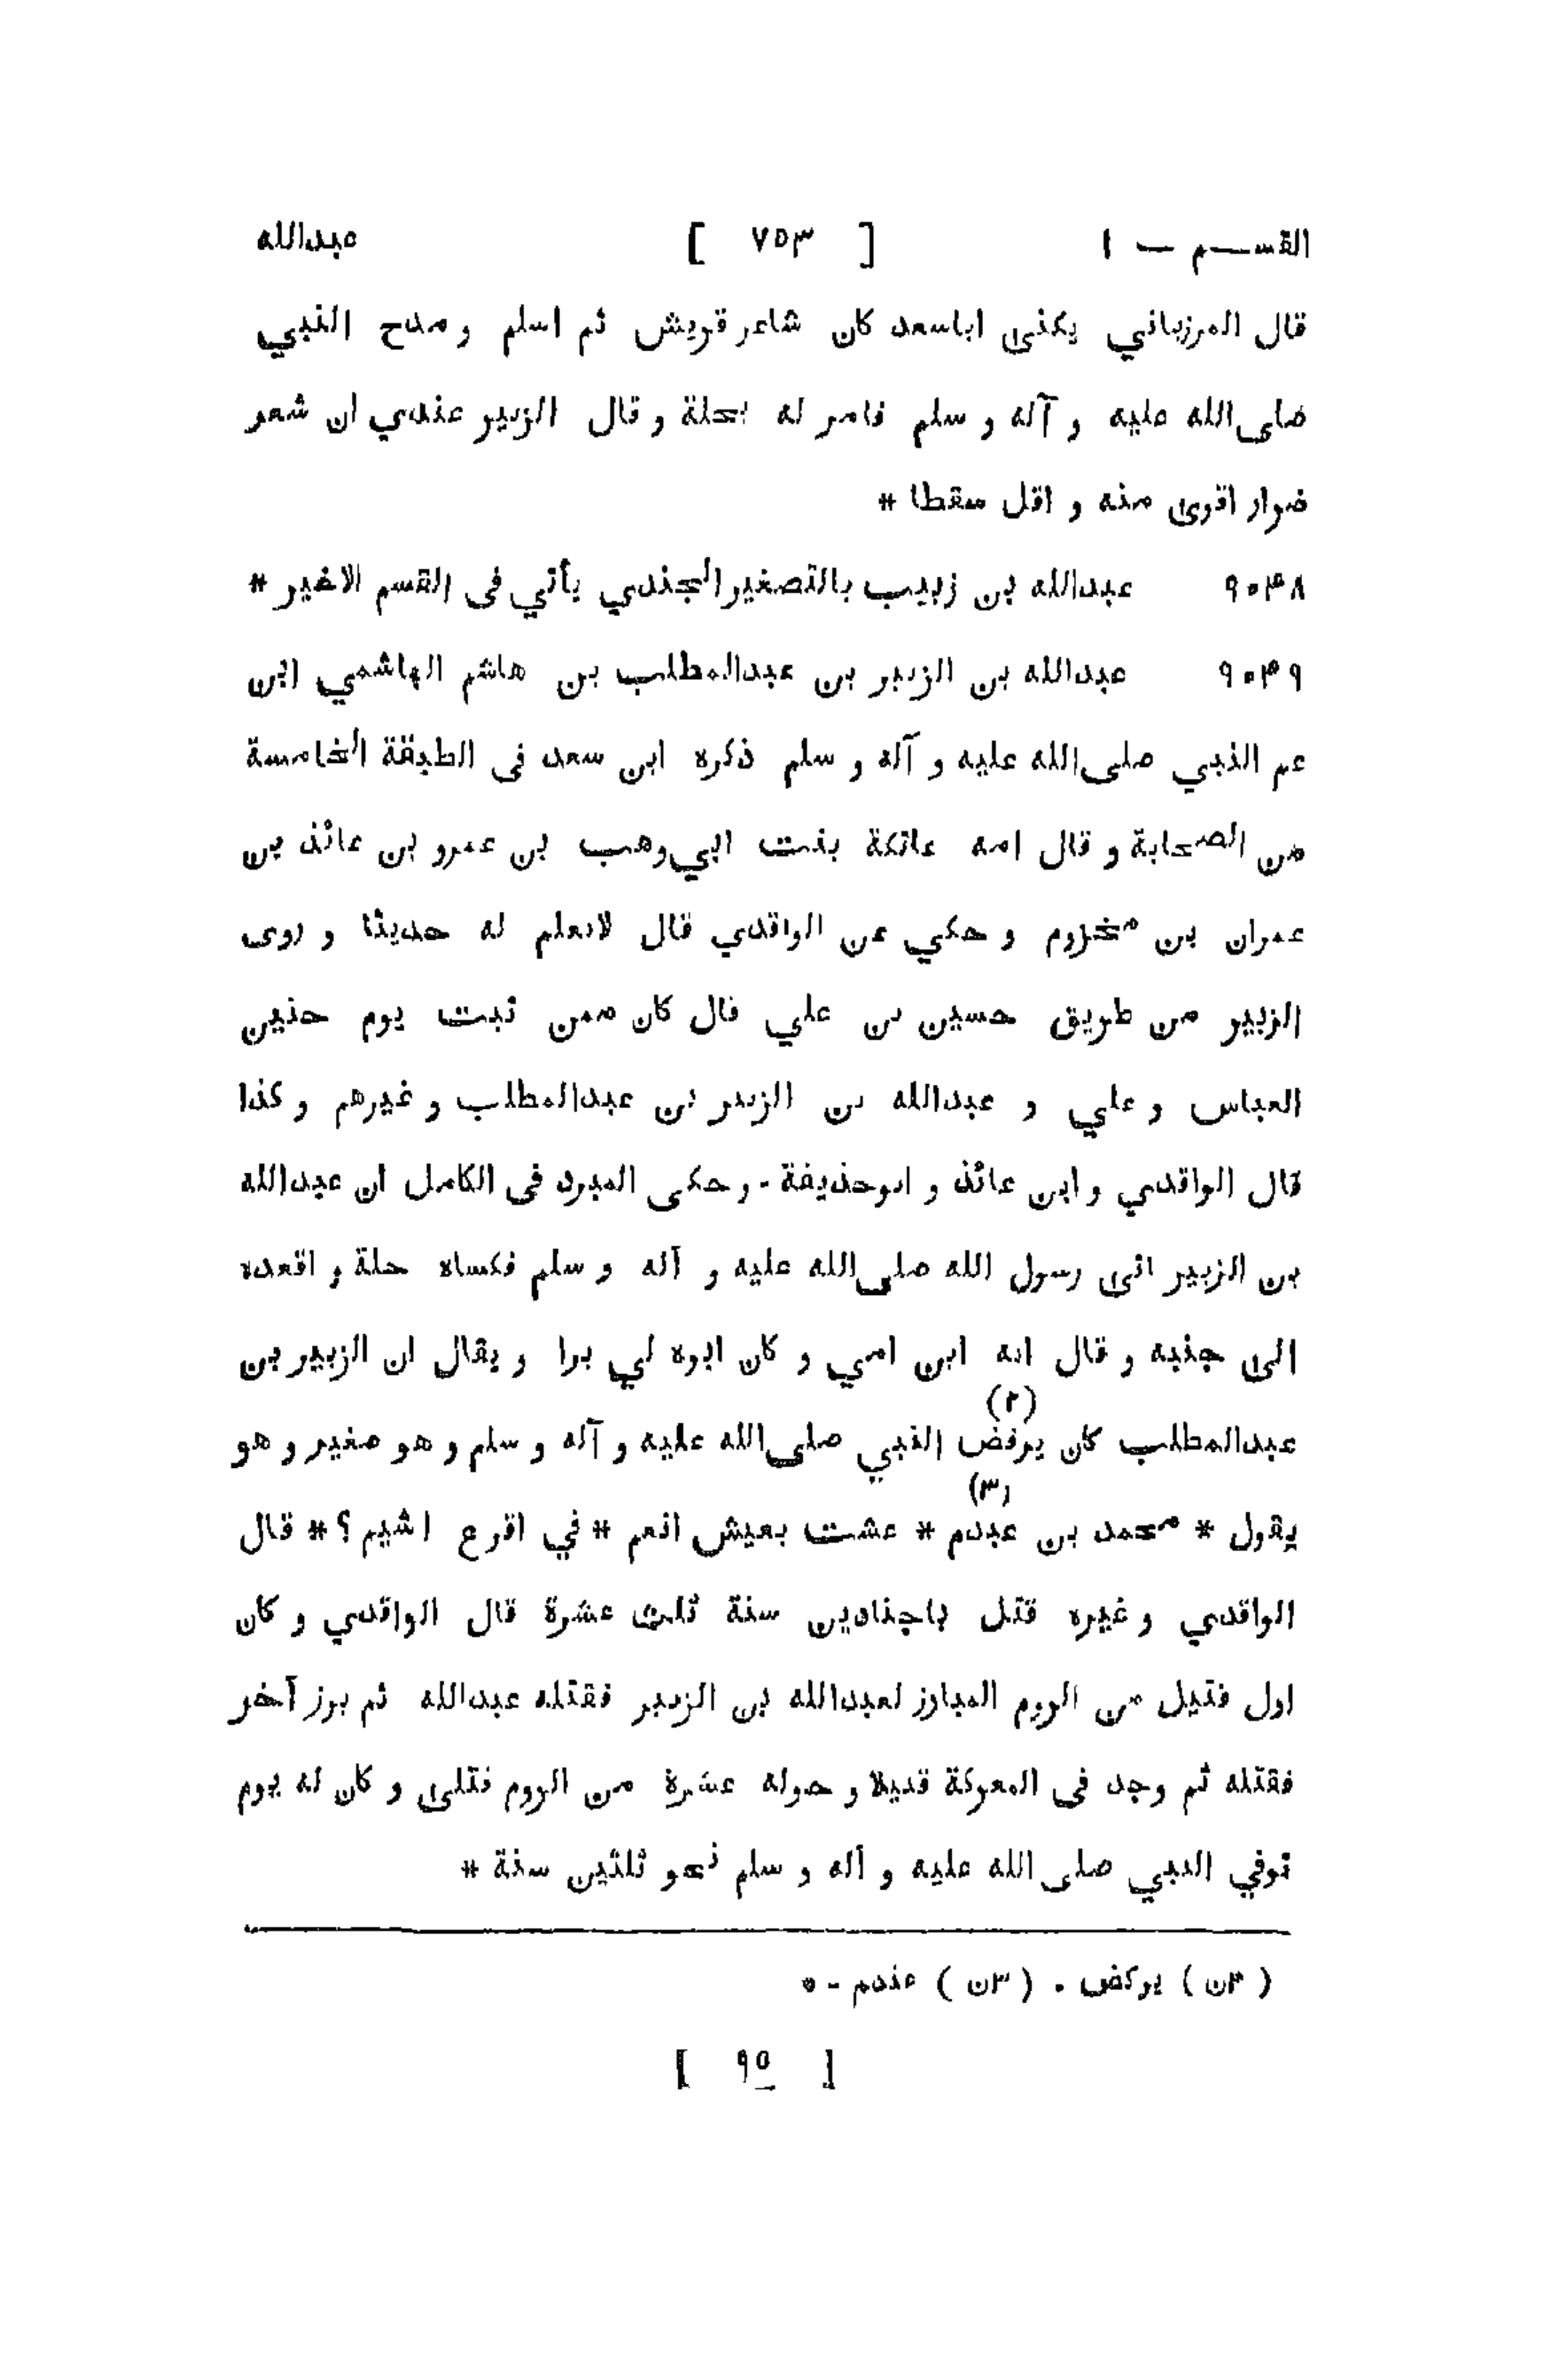 القســم — ١ [ ٧٥٣ ] عبدالله
قال المرزباني يكنى اباسعد كان شاعر قريش ثم اسلم ومدح النبي
صلى الله عليه و آله و سلم فامر له بحلة و قال الزبير عندي ان شعر
ضرار اقوى منه و اقل سقطا *
٩٠٣٨ عبدالله بن زبيب بالتصغير الجندي يأتي فى القسم الاخير *
٩٠٣٩ عبدالله بن الزبير بن عبدالمطلب بن هاشم الهاشمي ابن
عم النبي صلى الله عليه و آله و سلم ذكره ابن سعد فى الطبقة الخامسة
من الصحابة و قال امه عاتكة بنت ابي وهب بن عمرو بن عائذ بن
عمران بن مخزوم و حكي عن الواقدي قال لانعلم له حديثا و روى
الزبير من طريق حسين بن علي قال كان ممن ثبت يوم حنين
العباس و علي و عبدالله بن الزبير بن عبدالمطلب و غيرهم و كذا
قال الواقدي و ابن عائذ و ابوحذيفة - و حكى المبرد فى الكامل ان عبدالله
بن الزبير اتى رسول الله صلى الله عليه و آله و سلم فكساه حلة و اقعده
الى جنبه و قال انه ابن امي و كان ابوه لي برا و يقال ان الزبير بن
عبدالمطلب كان يرفض (٢) النبي صلى الله عليه و آله و سلم و هو صغير و هو
يقول * محمد بن عبدم (٣) * عشت بعيش انعم * في اقرع اشيم ؟ * قال
الواقدي و غيره قتل باجنادين سنة ثلث عشرة قال الواقدي و كان
اول قتيل من الروم المبارز لعبدالله بن الزبير فقتله عبدالله ثم برز آخر
فقتله ثم وجد فى المعركة قتيلا و حوله عشرة من الروم قتلى و كان له يوم
توفي النبي صلى الله عليه و آله و سلم نحو ثلثين سنة *
( ٢ن ) يركض . ( ٣ن ) عندم - *
[ ٩٥ ]